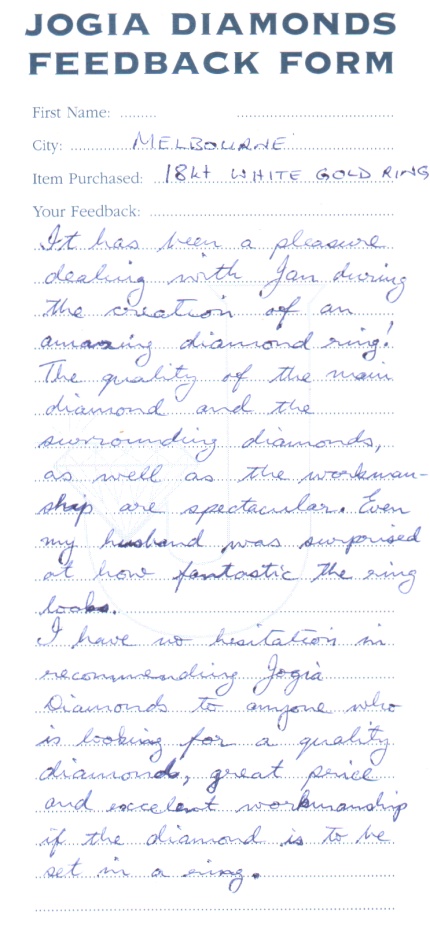 JOGIA DIAMONDS
FEEDBACK FORM
First Name:
City: MELBOURNE
Item Purchased: 18kt WHITE GOLD RING
Your Feedback:
It has been a pleasure
dealing with Jan during
the creation of an
amazing diamond ring!
The quality of the main
diamond and the
surrounding diamonds,
as well as the workman-
ship are spectacular. Even
my husband was surprised
at how fantastic the ring
looks.
I have no hesitation in
recommending Jogia
Diamonds to anyone who
is looking for a quality
diamonds, great price
and excelent workmanship
if the diamond is to be
set in a ring.